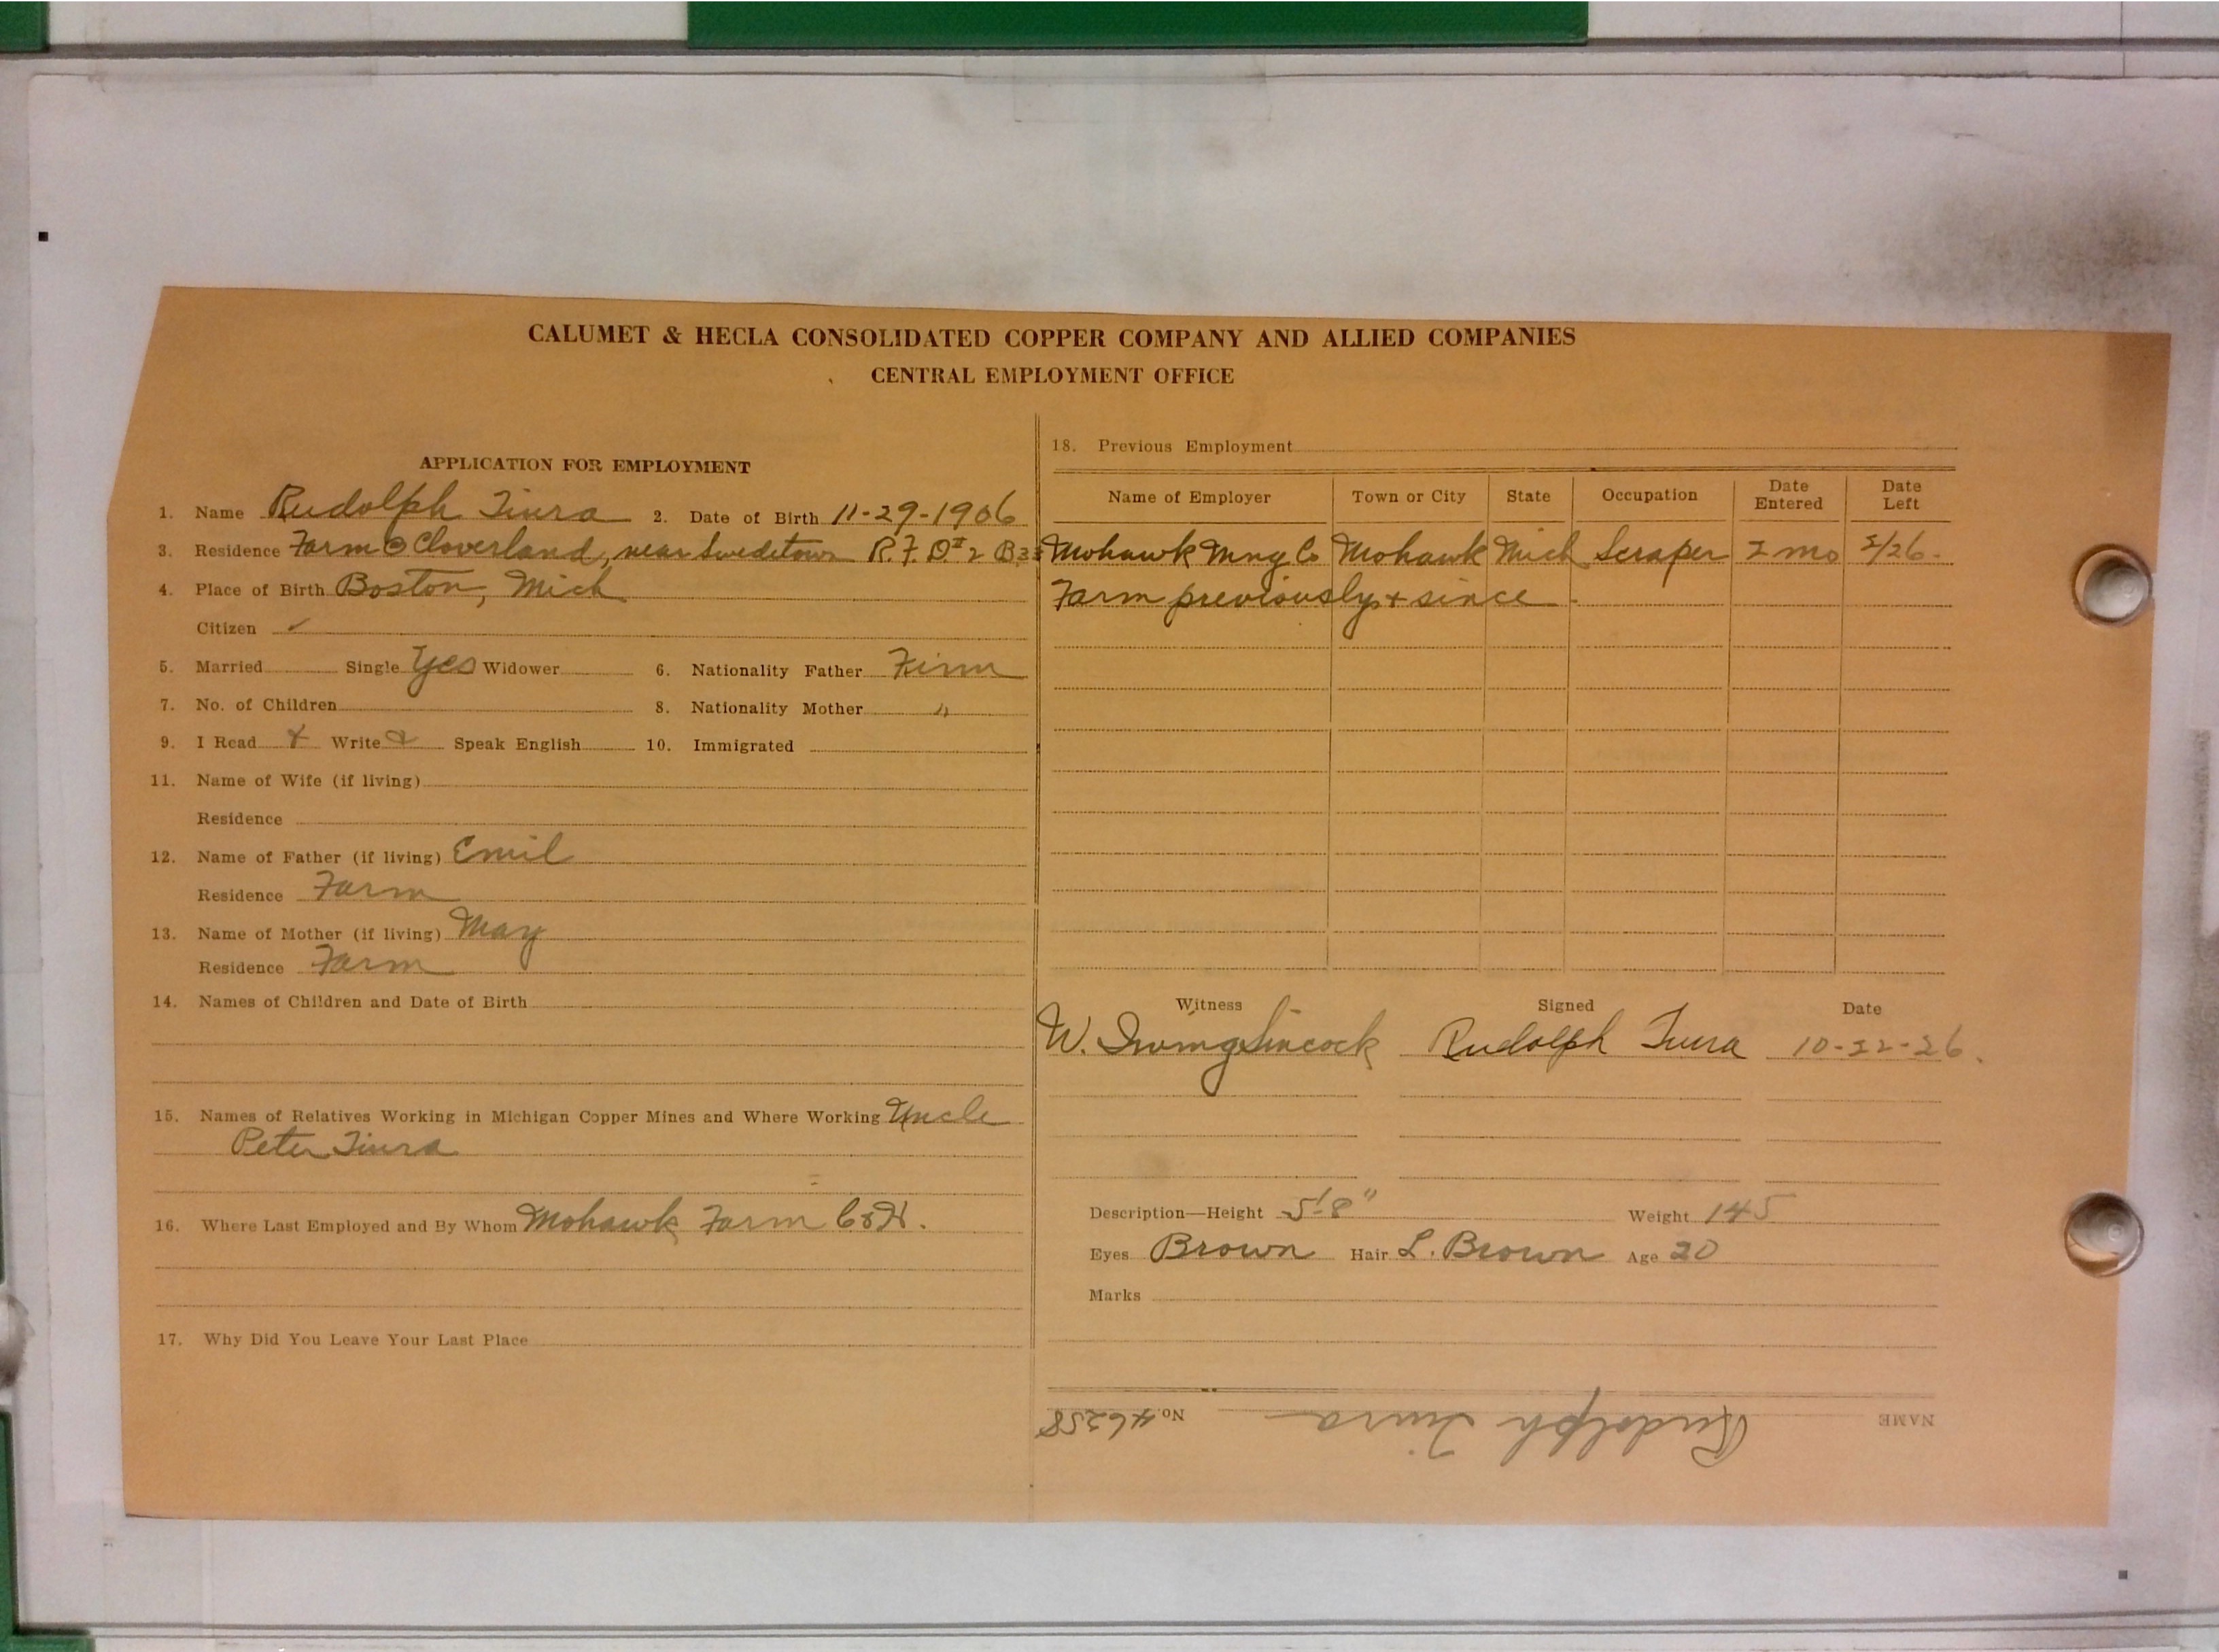 CALUMET & HECLA CONSOLIDATED COPPER COMPANY AND ALLIED COMPANIES
CENTRAL EMPLOYMENT OFFICE
APPLICATION FOR EMPLOYMENT
1. Name Rudolph Tiura 2. Date of Birth 11-29-1906
3. Residence Farm @ Cloverland, near Swedetown R.F.D. # 2
4. Place of Birth Boston, Mich
Citizen ✓
5. Married Single Yes Widower 6. Nationality Father Finn
7. No. of Children 8. Nationality Mother "
9. I Read Write Speak English 10. Immigrated
11. Name of Wife (if living)
Residence
12. Name of Father (if living) Emil
Residence Farm
13. Name of Mother (if living) May
Residence Farm
14. Names of Children and Date of Birth
15. Names of Relatives Working in Michigan Copper Mines and Where Working Uncle
Peter Tiura
16. Where Last Employed and By Whom Mohawk Farm C&H.
17. Why Did You Leave Your Last Place
18. Previous Employment
Name of Employer Town or City State Occupation Date Entered Date Left
Mohawk Mng Co Mohawk Mich Scraper 2 mo /26.
Farm previously + since
Witness Signed Date
W. Irving Sincock Rudolph Tiura 10-22-26.
Description—Height 5'-8" Weight 145
Eyes Brown Hair L. Brown Age 20
Marks
NAME Rudolph Tiura No. 46258